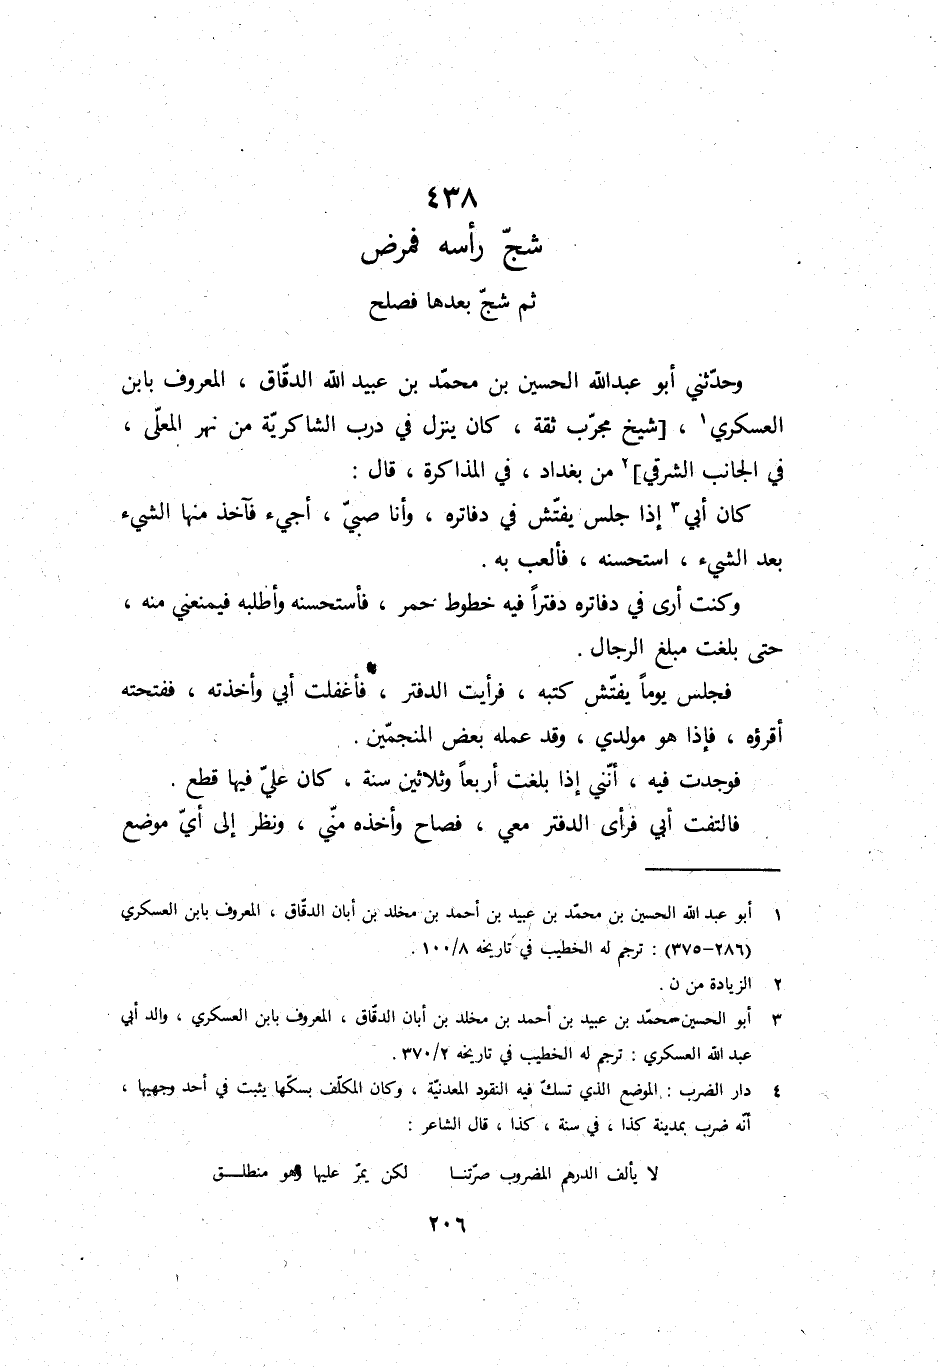 ٤٣٨
شجّ رأسه فمرض
ثم شجّ بعدها فصلح
وحدّثني أبو عبدالله الحسين بن محمّد بن عبيد الله الدقّاق ، المعروف بابن
العسكري١ ، [شيخ مجرّب ثقة ، كان ينزل في درب الشاكريّة من نهر المعلّى ،
في الجانب الشرقي]٢ من بغداد ، في المذاكرة ، قال :
كان أبي٣ إذا جلس يفتّش في دفاتره ، وأنا صبيّ ، أجيء فآخذ منها الشيء
بعد الشيء ، استحسنه ، فألعب به .
وكنت أرى في دفاتره دفتراً فيه خطوط حمر ، فأستحسنه وأطلبه فيمنعني منه ،
حتى بلغت مبلغ الرجال .
فجلس يوماً يفتّش كتبه ، فرأيت الدفتر ، فأغفلت أبي وأخذته ، ففتحته
أقرؤه ، فإذا هو مولدي ، وقد عمله بعض المنجمّين .
فوجدت فيه ، أنّني إذا بلغت أربعاً وثلاثين سنة ، كان عليّ فيها قطع .
فالتفت أبي فرأى الدفتر معي ، فصاح وأخذه منّي ، ونظر إلى أيّ موضع
١ أبو عبد الله الحسين بن محمّد بن عبيد بن أحمد بن مخلد بن أبان الدقّاق ، المعروف بابن العسكري
(٢٨٦-٣٧٥) : ترجم له الخطيب في تاريخه ١٠٠/٨ .
٢ الزيادة من ن .
٣ أبو الحسين محمّد بن عبيد بن أحمد بن مخلد بن أبان الدقّاق ، المعروف بابن العسكري ، والد أبي
عبد الله العسكري : ترجم له الخطيب في تاريخه ٣٧٠/٢ .
٤ دار الضرب : الموضع الذي تسكّ فيه النقود المعدنيّة ، وكان المكلّف بسكّها يثبت في أحد وجهيها ،
أنّه ضرب بمدينة كذا ، في سنة ، كذا ، قال الشاعر :
لا يألف الدرهم المضروب صرّتنـا لكن يمرّ عليها وهو منطلـــق
٢٠٦